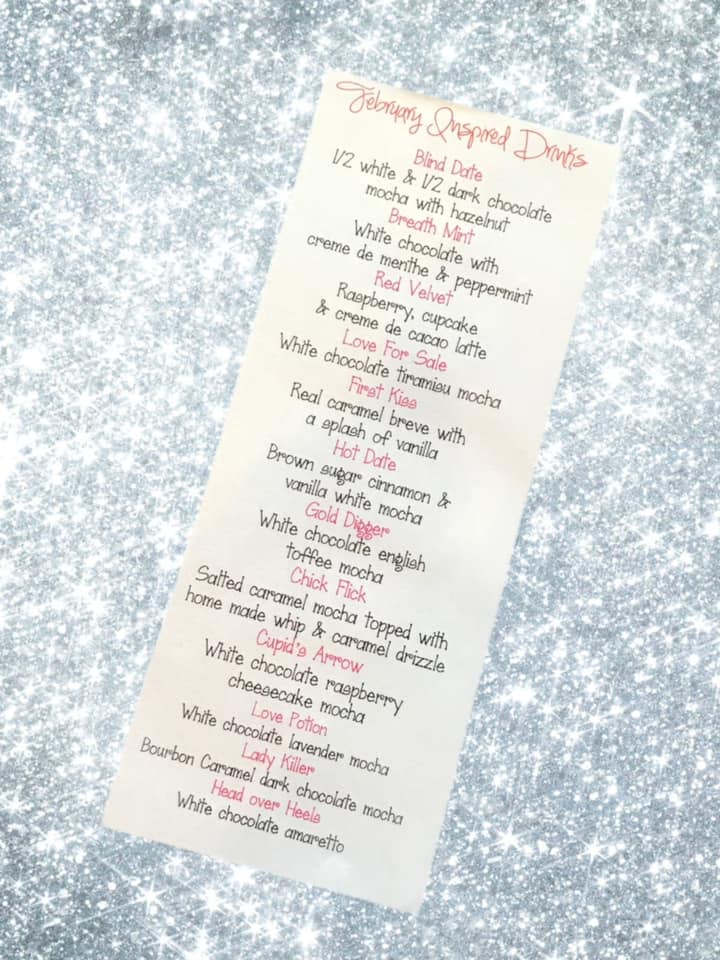 February Inspired Drinks
Blind Date
1/2 white & 1/2 dark chocolate
mocha with hazelnut
Breath Mint
White chocolate with
creme de menthe & peppermint
Red Velvet
Raspberry, cupcake
& creme de cacao latte
Love For Sale
White chocolate tiramisu mocha
First Kiss
Real caramel breve with
a splash of vanilla
Hot Date
Brown sugar cinnamon &
vanilla white mocha
Gold Digger
White chocolate english
toffee mocha
Chick Flick
Salted caramel mocha topped with
home made whip & caramel drizzle
Cupid's Arrow
White chocolate raspberry
cheesecake mocha
Love Potion
White chocolate lavender mocha
Lady Killer
Bourbon Caramel dark chocolate mocha
Head over Heels
White chocolate amaretto